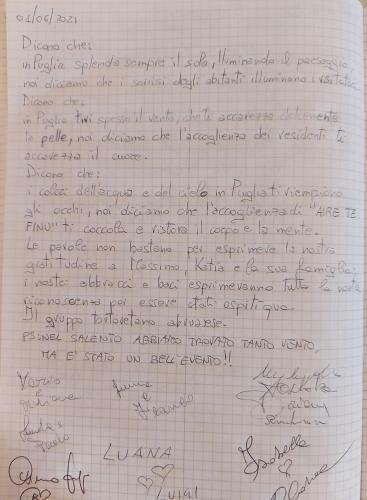 01/06/2021
Dicono che:
in Puglia splende sempre il sole, illuminando il paesaggio
noi diciamo che i sorrisi degli abitanti illuminano i
Dicono che:
in Puglia tiri spesso il vento, che ti accarezza dolcemente
la pelle, noi diciamo che l'accoglienza dei residenti ti
accarezza il cuore.
Dicono che:
i colori dell'acqua e del cielo in Puglia ti riempiono
gli occhi, noi diciamo che l'accoglienza di "AIRE TE
FINU" ti coccola e ristora il corpo e la mente.
Le parole non bastano per esprimere la nostra
gratitudine a Massimo, Katia e la sua famiglia;
i nostri abbracci e baci esprimeranno tutta la nostra
riconoscenza per essere stati ospiti qua.
Il gruppo tortoretano abruzzese.
PS: NEL SALENTO ABBIAMO TROVATO TANTO VENTO,
MA E' STATO UN BELL'EVENTO!!
LUANA
Isabella
LUIGI